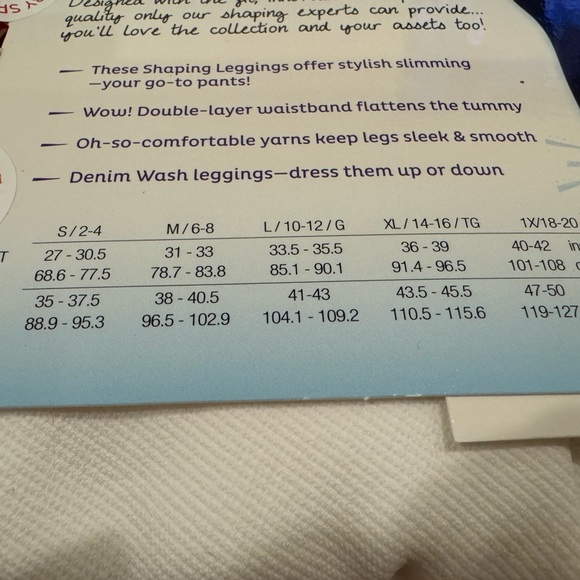 quality only our shaping experts can provide...
you'll love the collection and your assets too!
— These Shaping Leggings offer stylish slimming
—your go-to pants!
— Wow! Double-layer waistband flattens the tummy
— Oh-so-comfortable yarns keep legs sleek & smooth
— Denim Wash leggings—dress them up or down
S / 2-4 M / 6-8 L / 10-12 / G XL / 14-16 / TG 1X/18-20
T 27 - 30.5 31 - 33 33.5 - 35.5 36 - 39 40-42 in
68.6 - 77.5 78.7 - 83.8 85.1 - 90.1 91.4 - 96.5 101-108
35 - 37.5 38 - 40.5 41-43 43.5 - 45.5 47-50
88.9 - 95.3 96.5 - 102.9 104.1 - 109.2 110.5 - 115.6 119-127